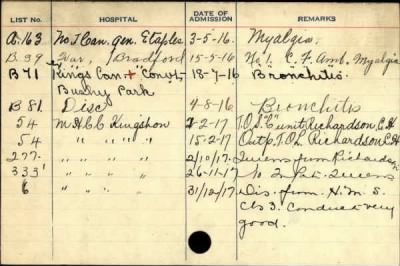 LIST No. HOSPITAL DATE OF ADMISSION REMARKS
A.163 No 1 Can. Gen. Etaples 3-5-16 Myalgia.
B.39 War, Bradford 15-5-16 No 1. C.F. Amb. Myalgia
B 71 Kings Can + Conv- 18-7-16 Bronchitis.
Bushy Park
B 81 Disc 4-8-16 Bronchitis
54 M H C C Kingston -2-17 T.O.S. "E" unit Richardson C.H
54 " " " " 15-2-17 Outp. T.O.L Richardson C.H
277. " " " " 2/10/17 Queens from Richardson
333 " " " 26-11-17 to Pat. Queens
6 " " " 31/12/17 Dis. from H.M.S.
Cls 3. Conduct very
good.